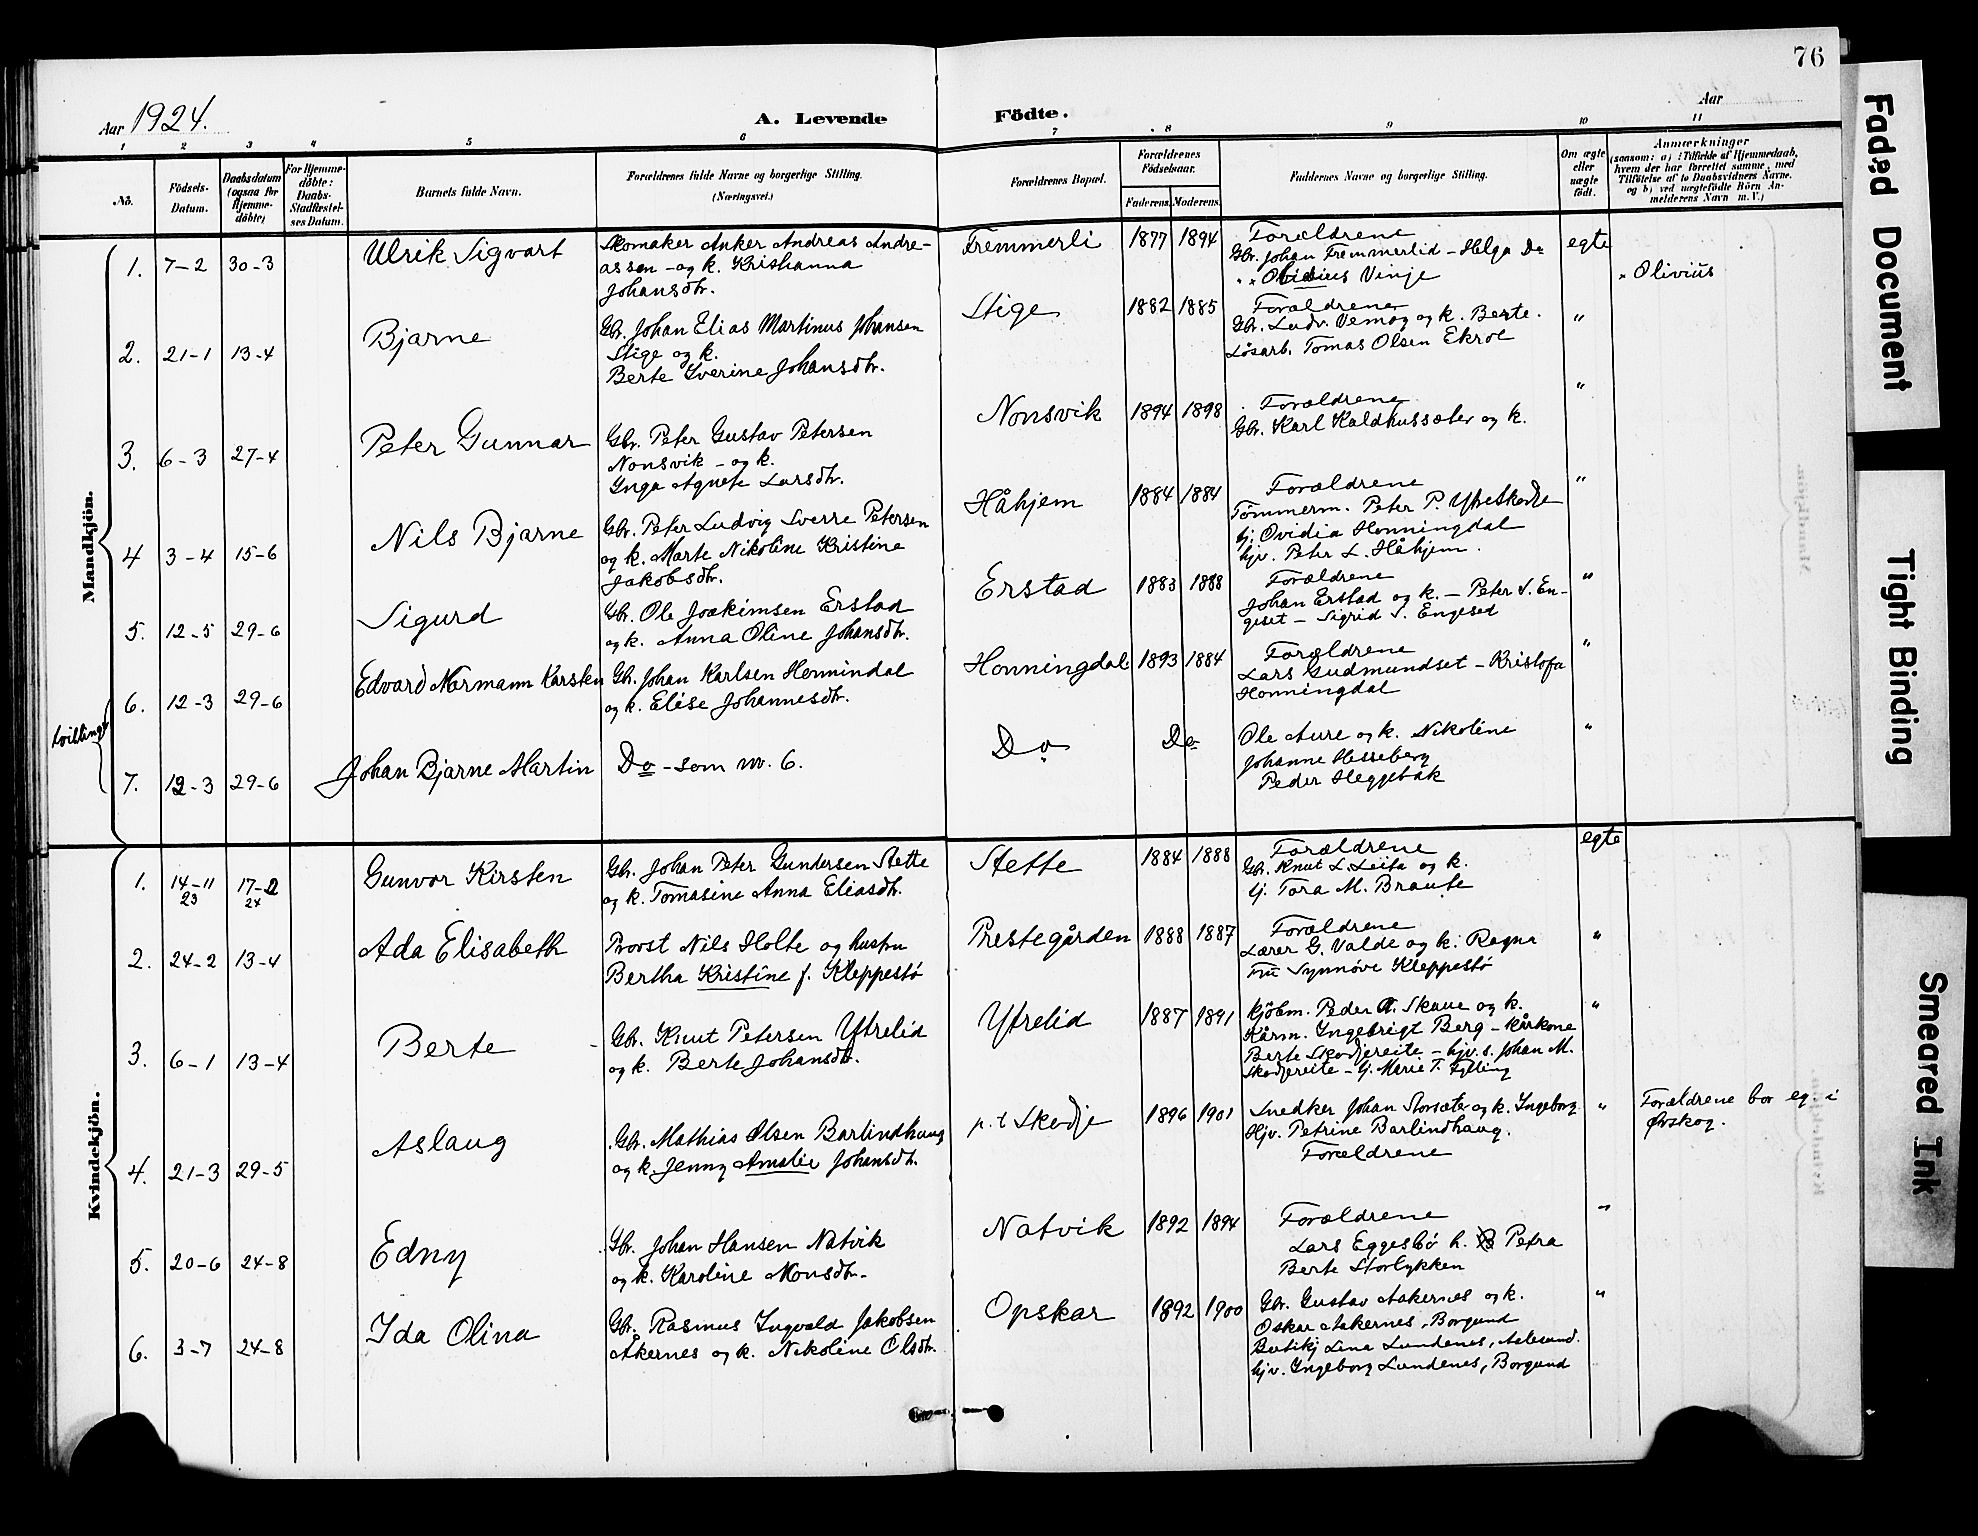 76
Aar 1924.
A. Levende Födte.
Aar
1 2 3 4 5 6 7 8 9 10 11
No.
Födsels-Datum.
Daabsdatum (ogsaa for Hjemme-döbte)
For Hjemme-döbte: Daabs-Stadfæstel-ses Datum.
Barnets fulde Navn.
Forældrenes fulde Navne og borgerlige Stilling. (Næringsvei.)
Forældrenes Bopæl.
Forældrenes Födselsaar.
Faderens. Moderens.
Faddernes Navne og borgerlige Stilling.
Om ægte eller uægte födt.
Anmærkninger
(saasom: a) i Tilfælde af Hjemmedaab,
hvem der har forrettet samme, med
Tilföielse af to Daabsvidners Navne.
og b) ved uægtefödte Börn An-
melderens Navn m. V.)
Mandkjön.
1. 7-2 30-3 Ulrik Sigvart
Skomaker Anker Andreas Andre-
assen - og k. Kristianna
Johansdtr.
Fremmerli 1877 1894
Forældrene
Gbr. Johan Fremmerlid - Helga Do
" " Ovidius Vinje
egte
" Oliviüs
2. 21-1 13-4 Bjarne
Gbr. Johan Elias Martinus Johansen
Stige og k.
Berte Iverine Johansdtr.
Stige 1882 1885
Forældrene
Gbr. Ludv. Vemøy og k. Berte.
Løsarb. Tomas Olsen Ekrol
"
3. 6-3 27-4 Peter Gunnar
Gbr. Peter Gustav Petersen
Nonsvik - og k.
Inga Agnete Larsdtr.
Nonsvik 1894 1898
Forældrene
Gbr. Karl Kaldhussæter og k.
"
4 3-4 15-6 Nils Bjarne
Gbr. Peter Ludvig Sverre Petersen
og k. Marte Nikoline Kristine
Jakobsdtr.
Håhjem 1884 1884
Forældrene
Tømmerm. Peter P. Ytreskodje
hj. Ovidia Honningdal
hjv. Peter L. Håhjem.
"
5. 12-5 29-6 Sigurd
Gbr. Ole Joakimsen Erstad
og k. Anna Oline Johansdtr.
Erstad 1883 1888
Forældrene
Johan Erstad og k. - Peter S. En-
geset - Sigrid S. Engeset
"
tvillinger
6. 12-3 29-6 Edvard Normann Karsten
Gbr. Johan Karlsen Honnindal
og k. Elise Johannesdtr.
Honningdal 1893 1884
Forældrene
Lars Gudmundset - Kristofa
Honningdal
"
7. 12-3 29-6 Johan Bjarne Martin
Do - som nr. 6.
Do Do
Ole Aure og k. Nikoline
Johanne Hesseberg
Peder Heggebak
"
Kvindekjön.
1. 14-11 23 17-2 24 Gunvor Kirsten
Gbr. Johan Peter Gundersen Stette
og k. Tomasine Anna Eliasdtr.
Stette 1884 1888
Forældrene
Gbr. Knut L. Leita og k.
hj. Tora M. Braute
egte
2. 24-2 13-4 Ada Elisabeth
Provst Nils Holte og hustru
Bertha Kristine f. Kleppestø
Prestegården 1888 1887
Forældrene
Lærer G. Valde og k. Ragna
Frü Synnøve Kleppestø
"
3. 6-1 13-4 Berte
Gbr. Knut Petersen Ytrelid
og k. Berte Johansdtr.
Ytrelid 1887 1891
Kjøbm. Peder A. Skaue og k.
Kårm. Ingebrigt Berg - kårkone
Berte Skodjereite - hjv. s. Johan M.
Skodjereite - hj. Marie T. Fylling
"
4. 21-3 29-5 Aslaug
Gbr. Mathias Olsen Barlindhaug
og k. Jenny Amalie Johansdtr.
p.t Skodje 1896 1901
Snedker Johan Storsæter og k. Ingeborg
Hjv. Petrine Barlindhaug.
Forældrene
"
Forældrene bor eg. i
Ørskog.
5. 20-6 24-8 Edny
Gbr. Johan Hansen Natvik
og k. Karoline Monsdtr.
Natvik 1892 1894
Forældrene
Lars Eggesbø h. Petra
Berte Storlykken
"
6. 3-7 24-8 Ida Olina
Gbr. Rasmus Ingvald Jakobsen
Åkernes og k. Nikoline Olsdtr.
Opskar 1892 1900
Gbr. Gustav Aakernes og k.
Oskar Aakernes, Borgund
Butikj Lina Lundenes, Aalesund.
hjv. Ingeborg Lundenes, Borgund
"
Faded Document
Tight Binding
Smeared Ink